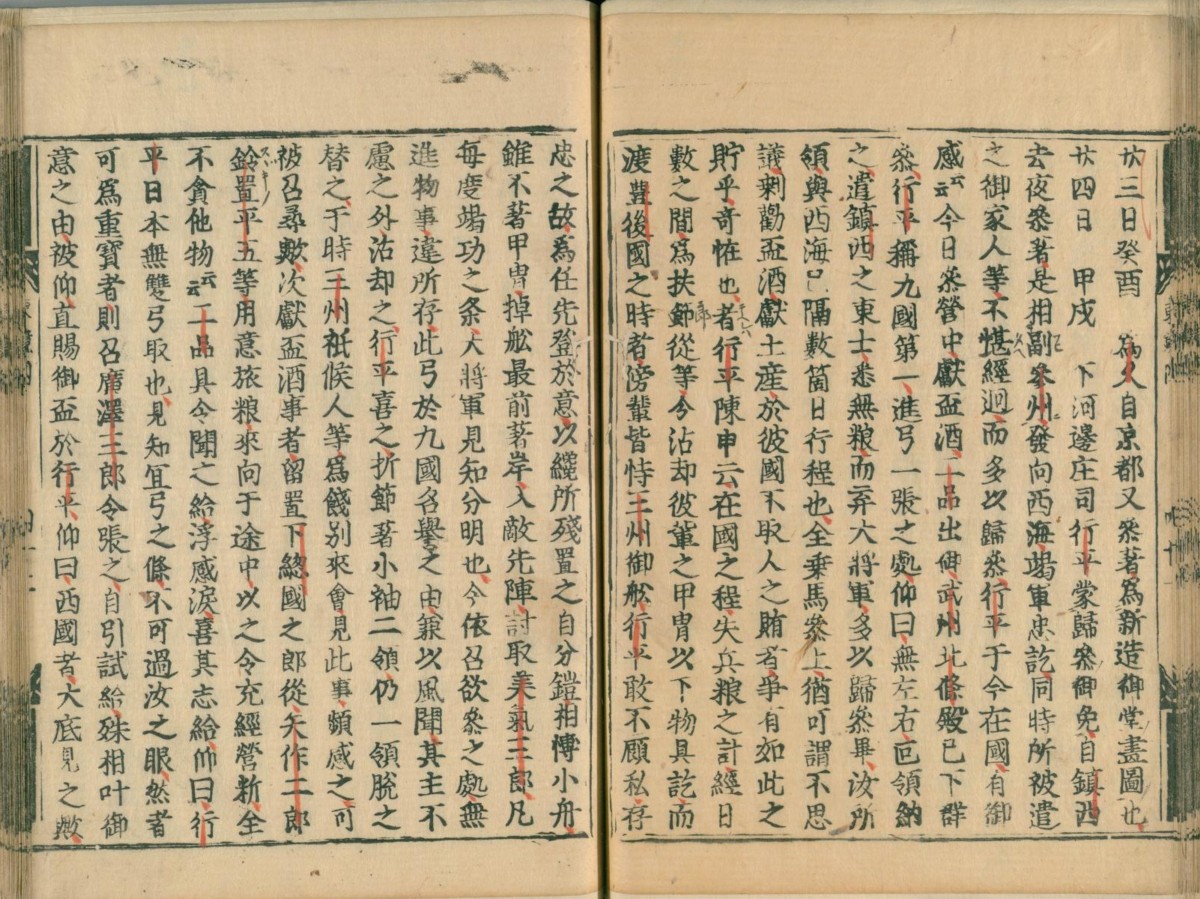 廿三日癸酉 為久自京都又参著為新造御堂畫圖也
廿四日 甲戌 下河邊庄司行平蒙歸参御免自鎮西
去夜参著是相副参州發向西海竭軍忠訖同時所被遣
之御家人等不堪經廻而多以歸参行平于今在國有御
感云云今日参営中獻盃酒一品出御武州北條殿已下群
参行平稱九國第一進弓一張之處仰曰無左右叵領納
之遣鎮西之東士悉無粮而弃大將軍多以歸参畢汝所
領與西海已隔數箇日行程也全乗馬参上猶可謂不思
議剰勸盃酒獻土産於彼國不取人之賄者爭有如此之
貯乎奇恠也者行平陳申云在國之程失兵粮之計經日
數之間為扶郎從等令沽却彼輩之甲冑以下物具訖而
渡豊後國之時者傍輩皆恃三州御舩行平敢不顧私存
忠之故為任先登於意以纔所殘置之自分鎧相博小舟
雖不著甲冑掉舩最前著岸入敵先陣討取美氣三郎凡
毎度竭功之条大將軍見知分明也今依召欲参之處無
進物事違所存此弓於九國名譽之由兼以風聞其主不
慮之外沽却之行平喜之折節著小袖二領仍一領脱之
替之于時三州祗候人等為餞別來會見此事頻感之可
被召尋歟次獻盃酒事者留置下総國之郎從矢作二郎
鈴置平五等用意旅粮來向于途中以之令充經營新全
不貪他物云云二品具令聞之給浮感涙喜其志給仰曰行
平日本無雙弓取也見知冝弓之條不可過汝之眼然者
可為重寳者則召廣澤三郎令張之自引試給殊相叶御
意之由被仰直賜御盃於行平仰曰西國者大底見之歟